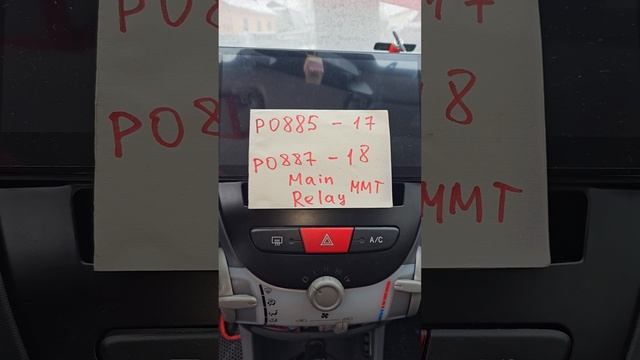 P0885 - 17
P0887 - 18
Main MMT
Relay
A/C